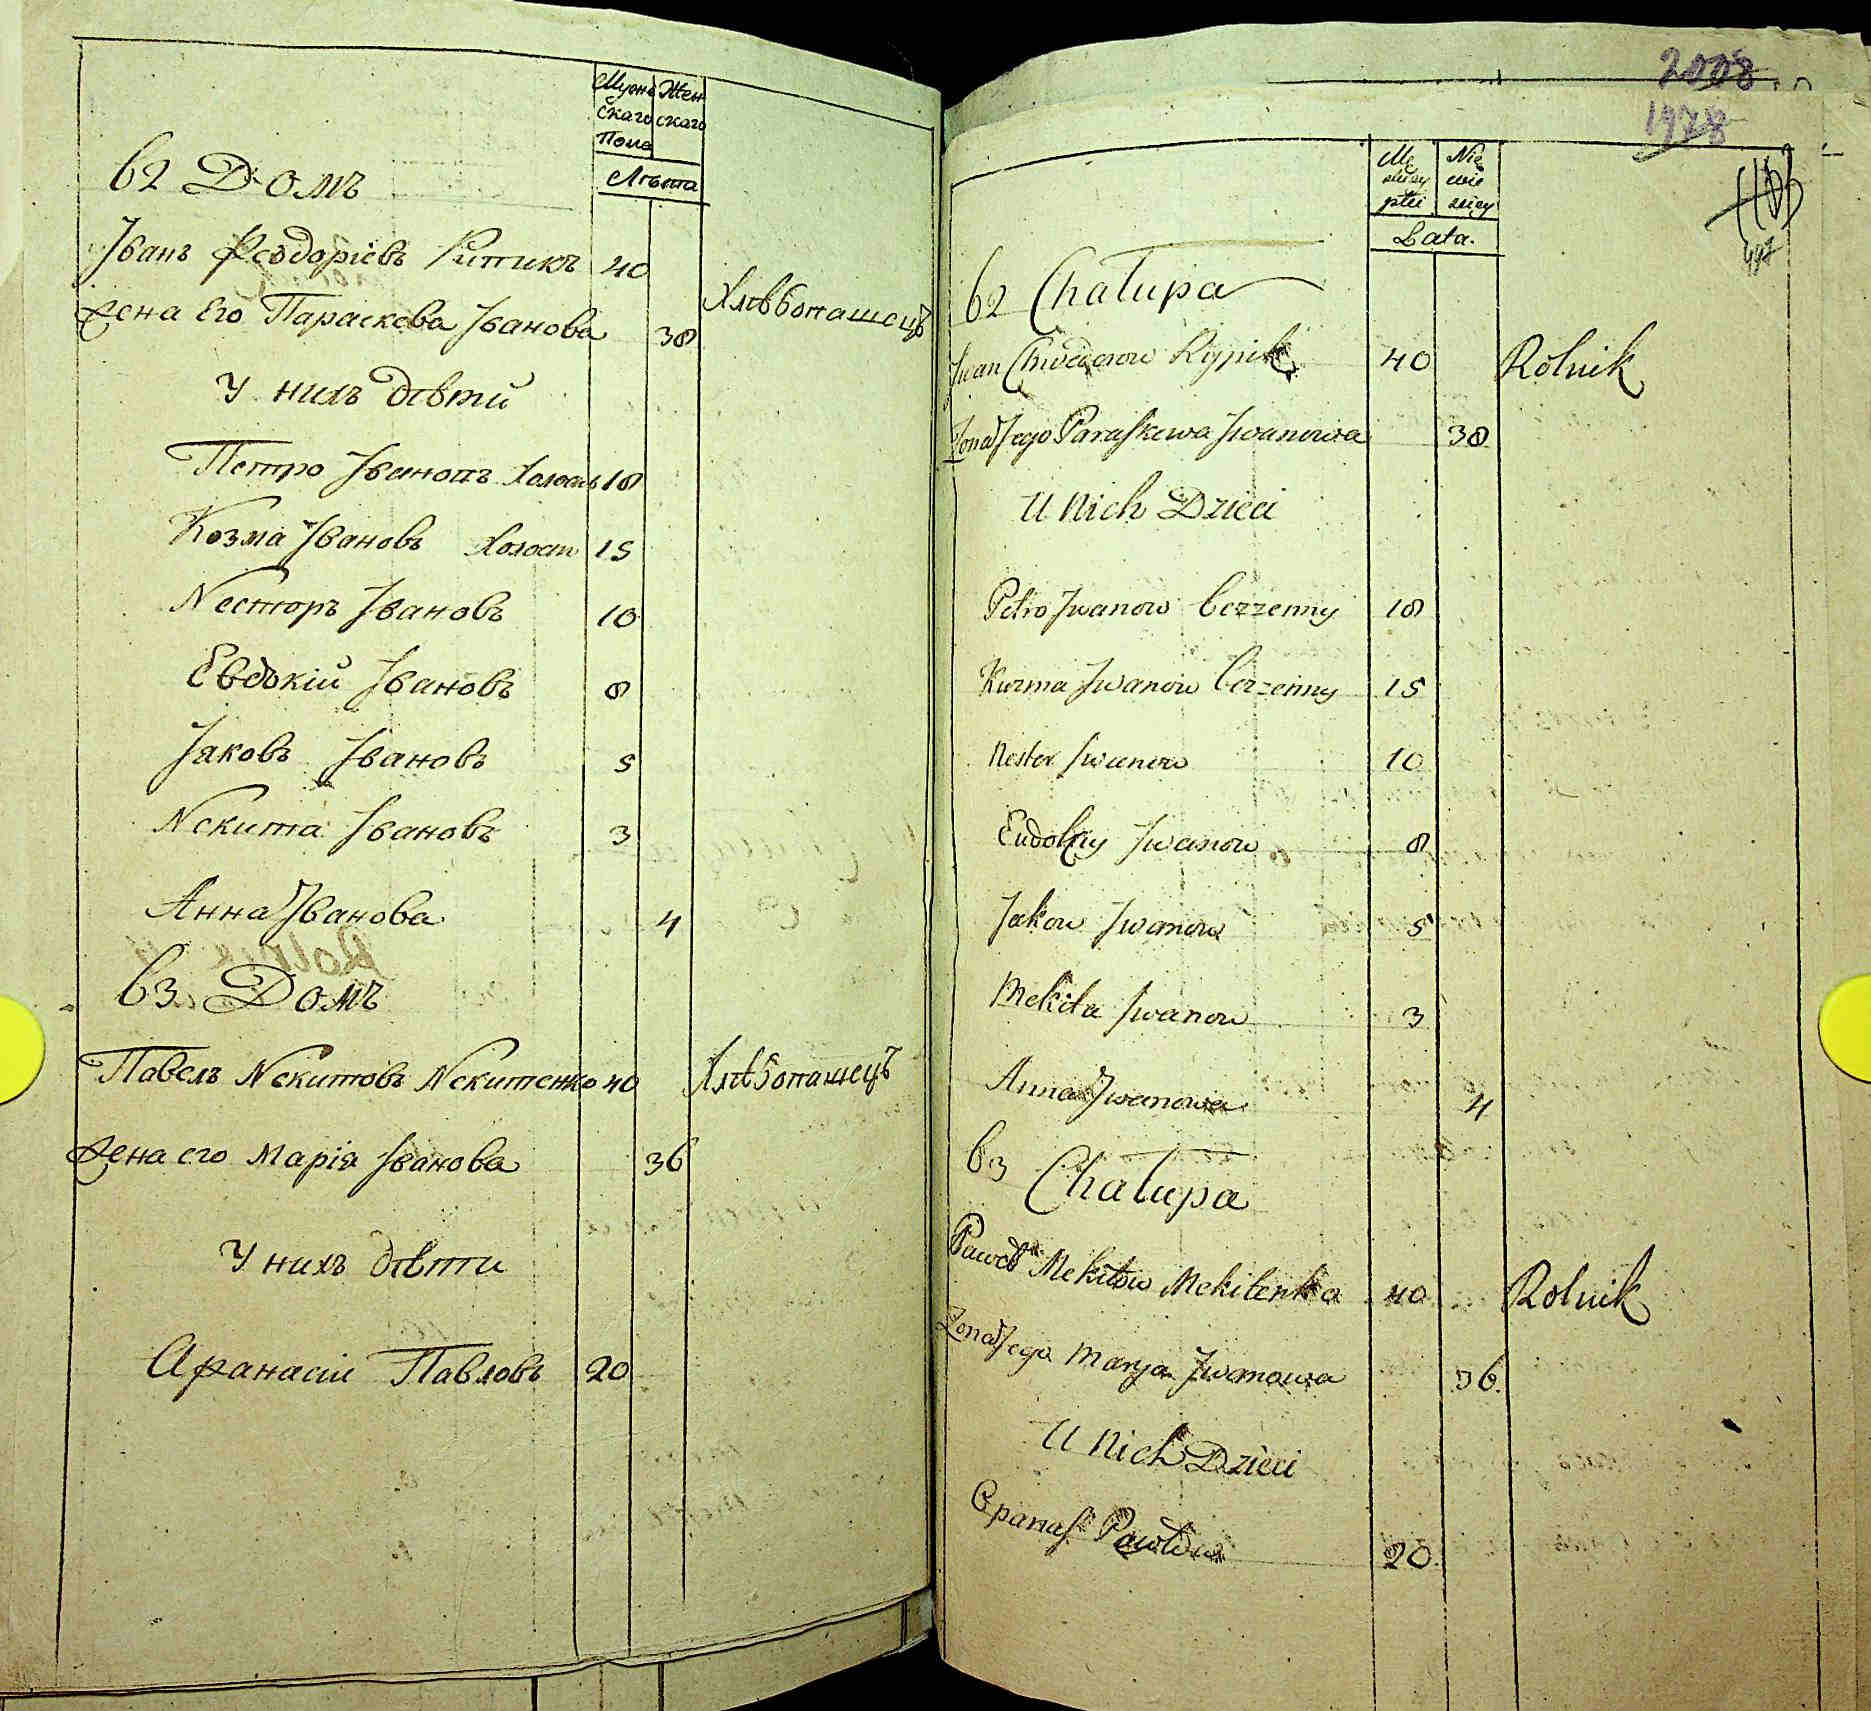 Мужескаго Женскаго
Пола
Лѣта
62 Домъ
Іванъ Феодоріевъ Рипикъ 40 Хлѣбопашецъ
жена Его Параскева Іванова 38
У нихъ дѣтй
Петро Івановъ Холостъ 18
Козма Івановъ Холост 15
Nесторъ Івановъ 10
Евдокій Івановъ 8
Іяковъ Івановъ 5
Nекита Івановъ 3
Анна Іванова 4
63 Домъ
Павелъ Nекитовъ Nекитенко 40 Хлѣбопашецъ
жена его Марія Іванова 36
У нихъ дѣти
Афанасіи Павловъ 20
2008
1978
Lata.
62 Chałupa
Jwan Chwedorow Rypik 40 Rolnik
Żona Jego Paraskewa Jwanowa 38
U Nich Dzieci
Petro Jwanow bezzenny 18
Kuzma Jwanow bezzenny 15
Nester Jwanow 10
Eudokiy Jwanow 8
Jakow Jwanow 5
Mekita Jwanow 3
Anna Jwanowa 4
63 Chałupa
Paweł Mekitow Mekitenko 40 Rolnik
Żona Jego Marya Jwanowa 36.
U Nich Dzieci
Opanas Pawłow 20.